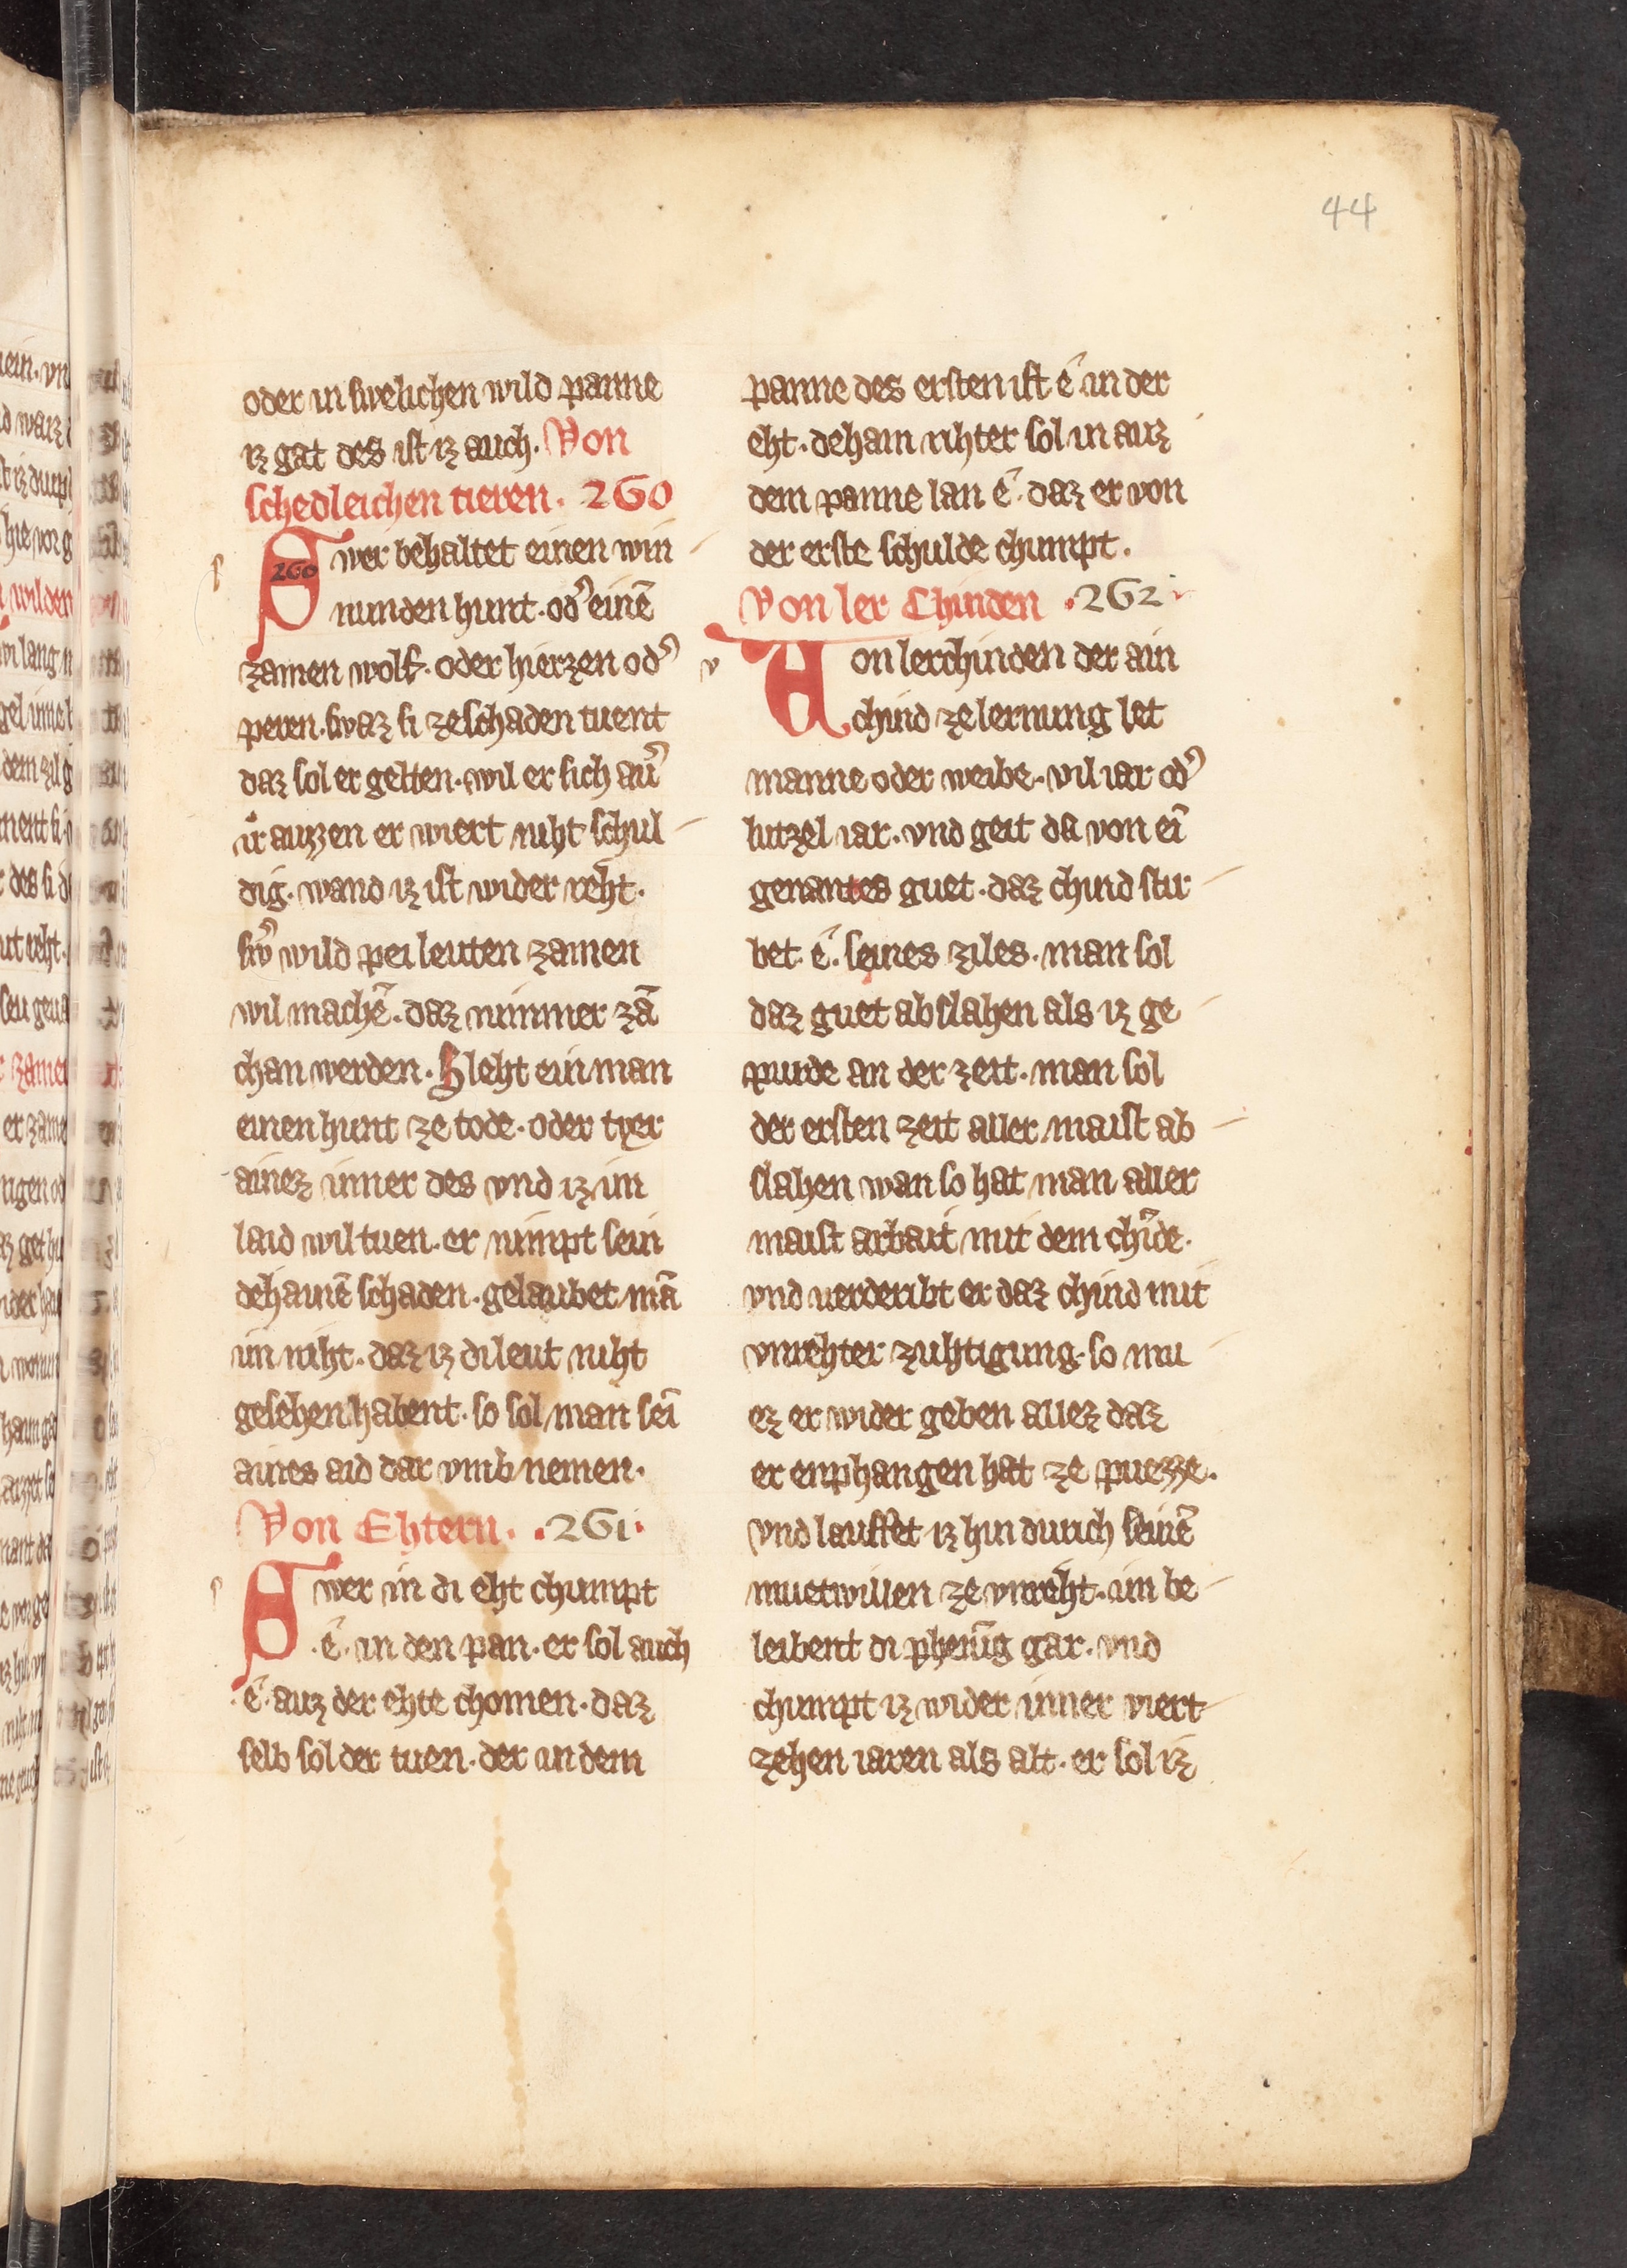 44
oder in swelichen wild panne
iz gat des ist iz auch. Von
schedleichen tieren. 260
Swer behaltet einen win
260
nunden hunt. od̾ einē
zamen wolf. oder hierzen od̾
peren. swaz si ze schaden tuent
daz sol er gelten. wil er sich au̾
ir auzzen er wiert niht schul
dig. wand iz ist wider reht.
sw̾ wild pei leuten zamen
wil machē. daz nimmer zā
chan werden. Sleht ein man
einen hunt ze tode. oder tyer
ainez inner des vnd iz im
laid wil tuen. er nimpt sein
dehainē schaden. gelaubet mā
im niht. daz iz di leut niht
gesehen habent. so sol man sei̅
aines aid dar vmb nemen.
Von Ehtern. .261.
Swer in di eht chumpt
.e. in den pan. er sol auch
.e. auz der ehte chomen. daz
selb sol der tuen. der in dem
panne des ersten ist e in der
eht. dehain rihter sol in auz
dem panne lan e. daz er von
der erste schulde chumpt.
Von ler Chinden .262.
Von lerchinden der ain
chind ze lernung let
manne oder weibe. vil iar od̾
lutzel iar. vnd geit da von ei̅
genantes guet. daz chind stir
bet e. seines ziles. man sol
daz guet abslahen als iz ge
purde an der zeit. man sol
der ersten zeit aller maist ab
slahen wan so hat man aller
maist arbait mit dem chi̅de.
vnd verderibt er daz chind mit
vnrehter zuhtigung. so mu
ez er wider geben allez daz
er enphangen hat ze puezze.
vnd lauffet iz hin durich seinē
muetwillen ze vnreht. im be
leibent di pheni̅g gar. vnd
chumpt iz wider inner viert
zehen iaren als alt. er sol iz